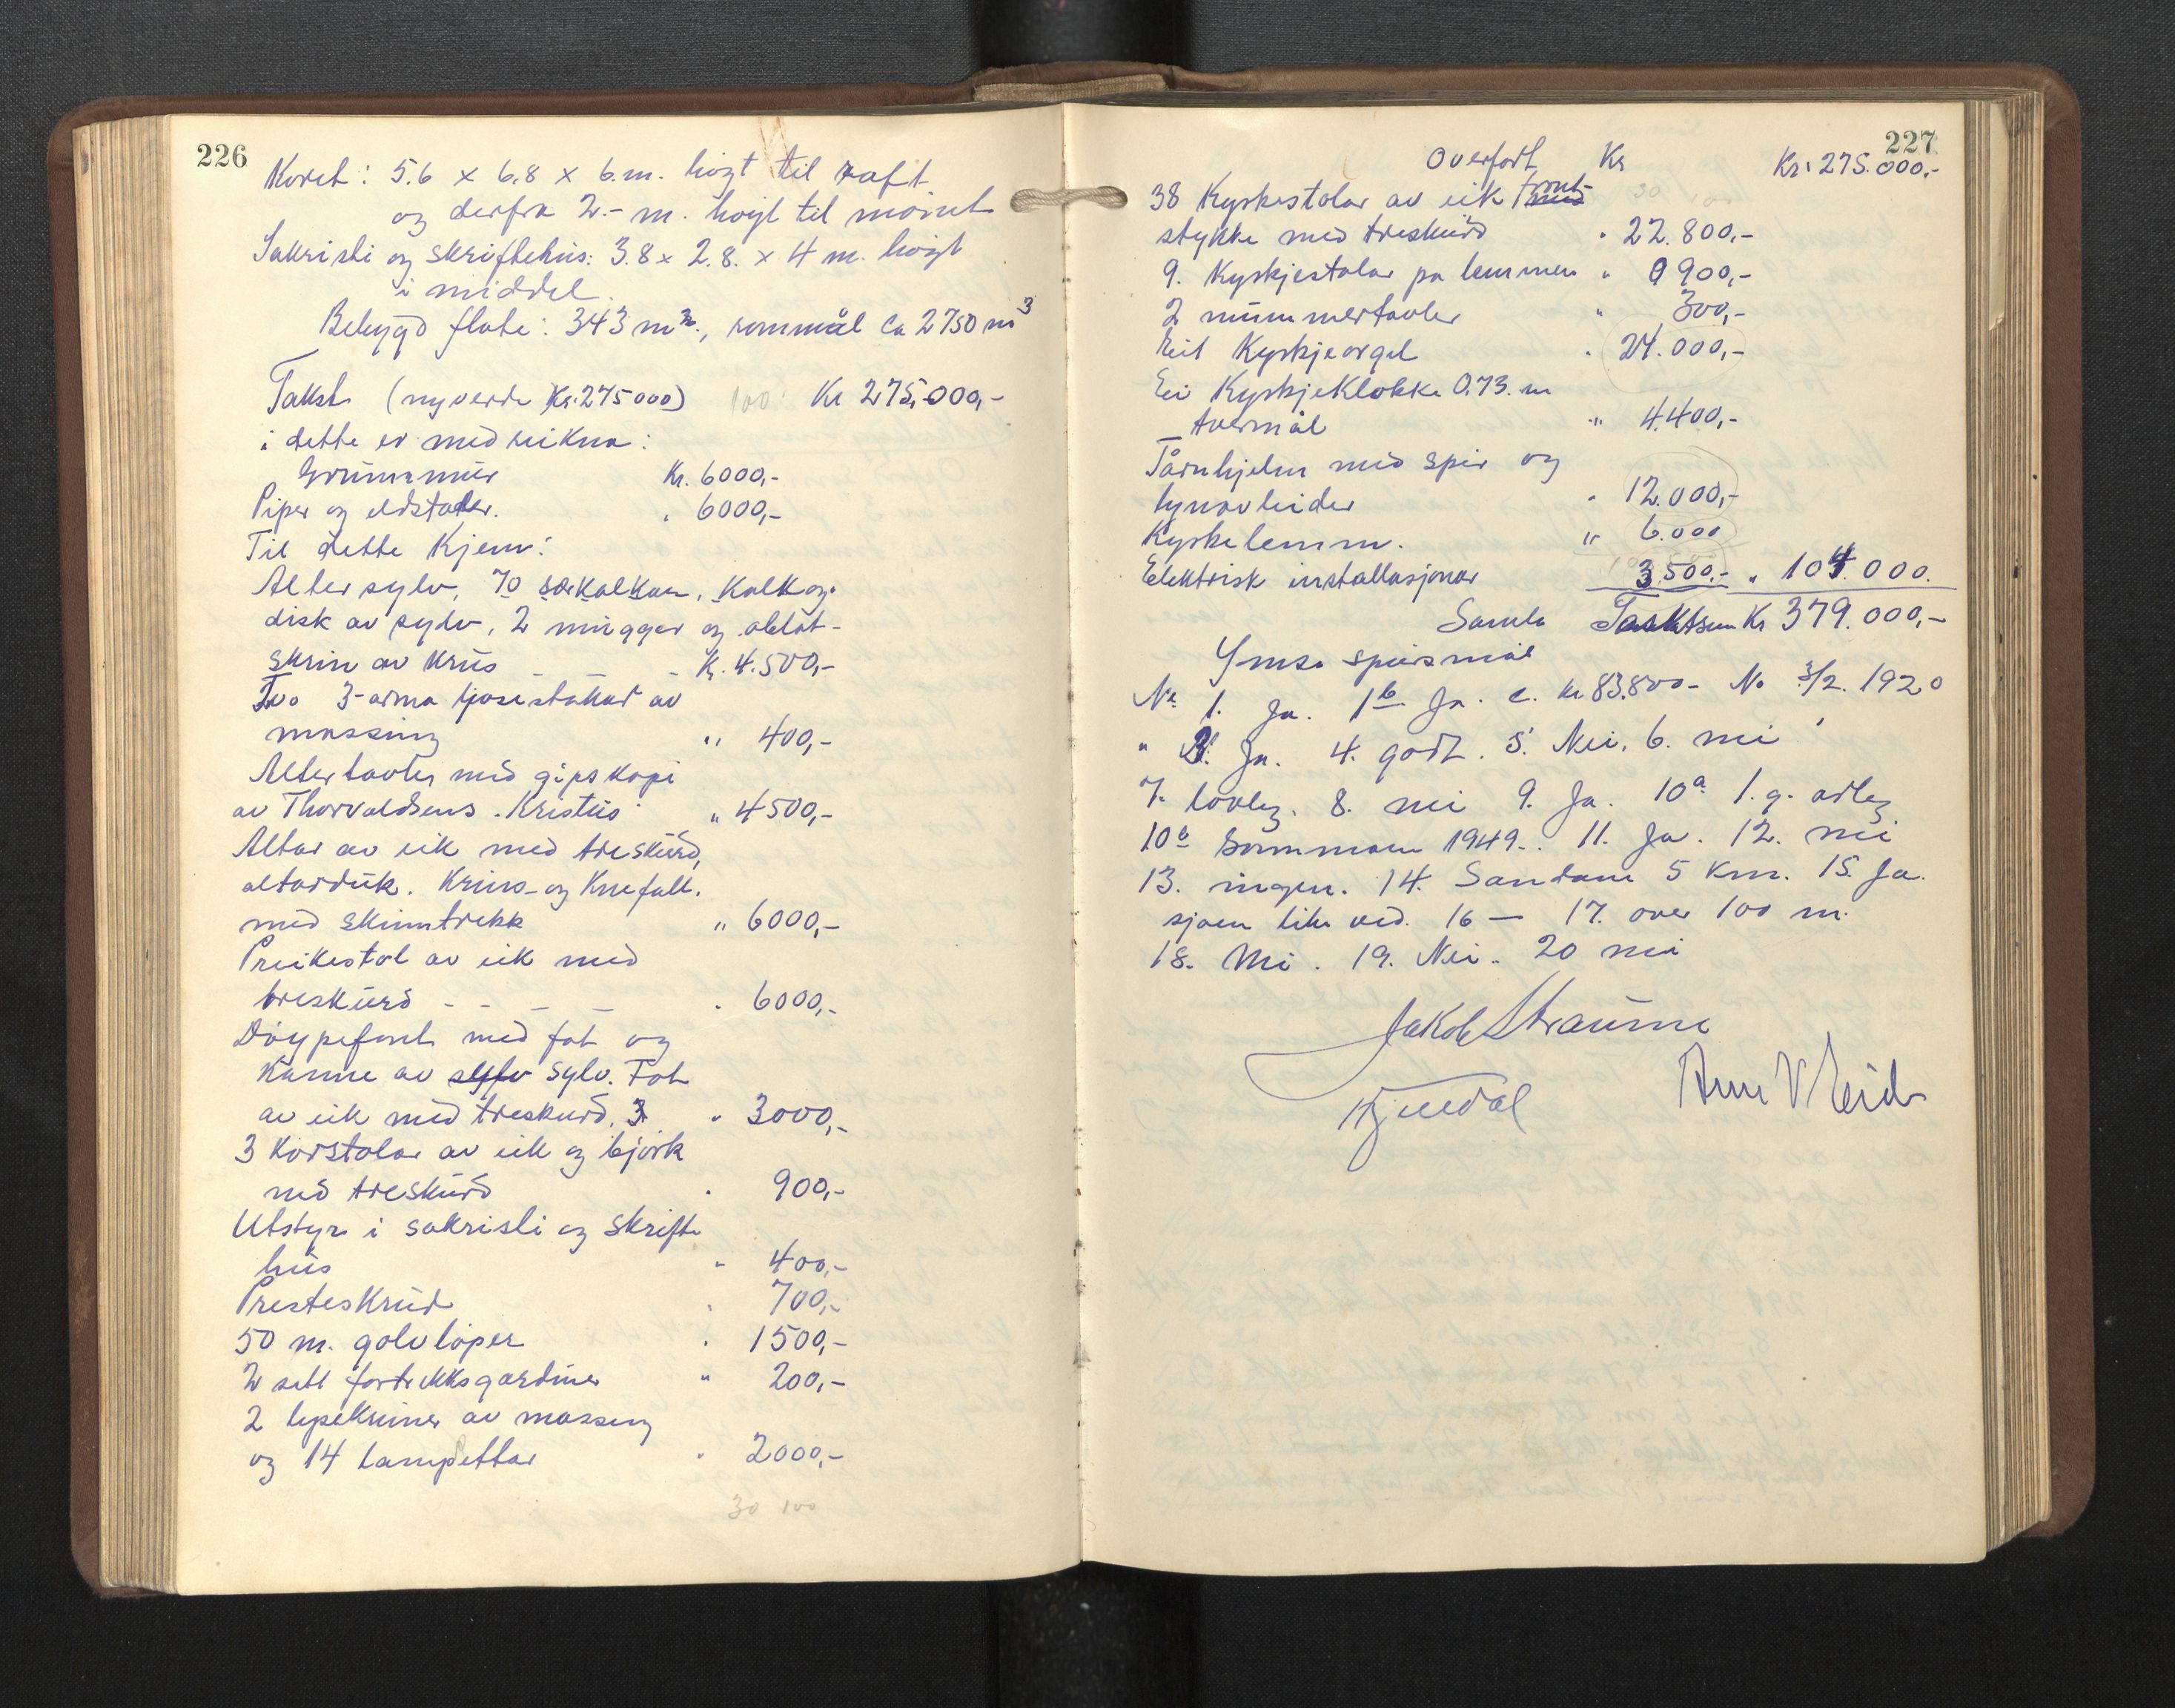 226
Koret: 5.6 x 6.8 x 6.m. høgt til raft
og derfra 2.- m. høgt til mønet
Sakristi og skriftehus: 3.8 x 2.8. x 4 m. høgt
i middel.
Bebygd flate: 343 m2., rommål ca 2750 m3
Takst (nyverde Kr. 275 000) 100 Kr 275.000,-
i dette er medreikna:
Grunnmur Kr. 6000,-
Piper og eldstader. " 6000,-
Til dette kjem:
Altersylv, 70 særkalkar, Kalk og
disk av sylv, 2 mugger og oblat-
skrin av krus - - Kr. 4.500,-
Two 3-arma ljosestakar av
massing " 400,-
Altertavle med gipskopi
av Thorvaldsens Kristus " 4500,-
Altar av eik med treskurd,
altarduk. Krins- og Knefall.
med skinntrekk " 6000,-
Preikestol av eik med
treskurd - - - - " 6000,-
Døypefont med fat og
kanne av sylv sylv. Fot
av eik med treskurd. 3 " 3000,-
3 Korstolar av eik og bjørk
med treskurd " 900,-
Utstyr i sakristi og skrifte
hus " 400,-
Presteskrud " 700,-
50 m. golvløper " 1500,-
2 sett fortrekksgardiner " 200,-
2 lysekruner av massing
og 14 Lampettar " 2000,-
30 100
227
Overført Kr Kr. 275.000,-
38 Kyrkestolar av eik front-
stykke med treskurd " 22.800,-
9. Kyrkjestolar på lemmen " 900,-
2 nummertavler " 300,-
Eit Kyrkjeorgel " 24.000,-
Ei Kyrkjeklokke 0.73. m
tvermål " 4.400,-
Tårnhjelm med spir og
lynavleider " 12.000,-
Kyrkelemm. " 6.000
Elektrisk installasjonar 3.500,- " 104.000.
Samla Taktsum Kr 379.000,-
Ymse spursmål
Nr. 1. Ja. 1b Ja. c. kr 83.800- No 3/2. 1920
" 3. Ja. 4. godt. 5. Nei. 6. nei
7. lovleg. 8. nei 9. Ja. 10a 1. g. årleg
10b Sommaren 1949. 11. Ja. 12. nei
13. ingen. 14. Sandane 5 km. 15. Ja.
sjøen like ved. 16 — 17. over 100 m.
18. Nei. 19. Nei. 20 nei
Jakob Straume